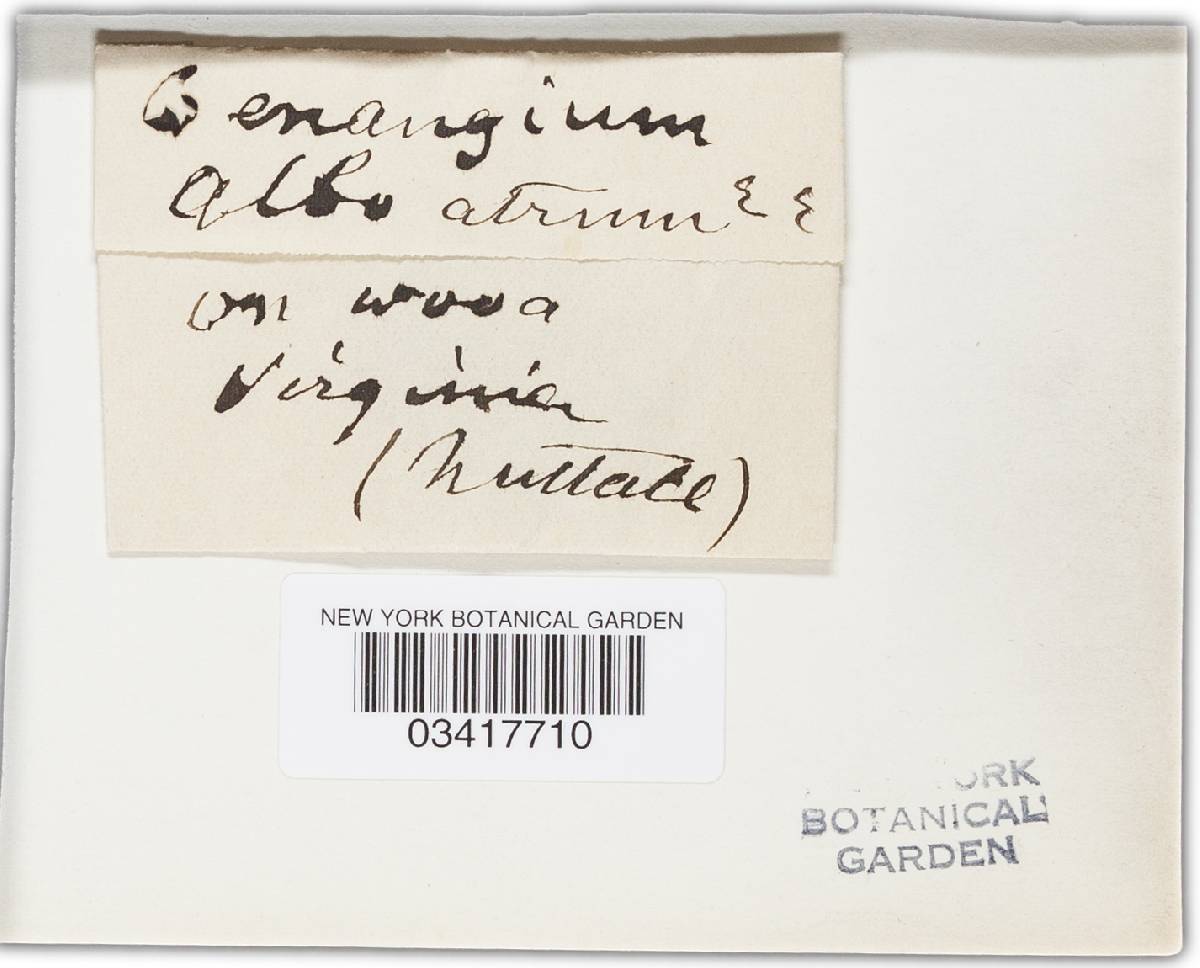 Cenangium
albo atrum E E
on wood
Virginia
(Nuttall)
NEW YORK BOTANICAL GARDEN
03417710
ORK
BOTANICAL
GARDEN